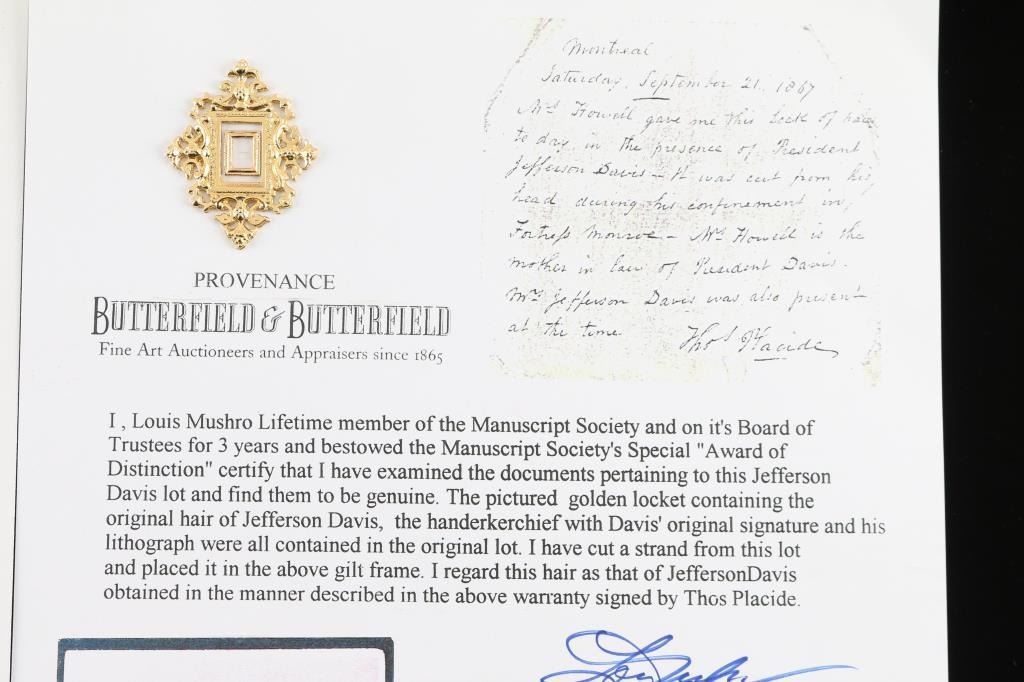 Montreal
Saturday, September 21. 1867
Mrs Howell gave me this lock of hair
to day in the presence of President
Jefferson Davis - It was cut from his
head during his confinement in
Fortress Monroe - Mrs Howell is the
mother in law of President Davis.
Mrs Jefferson Davis was also present
at the time
Thos Placide
PROVENANCE
BUTTERFIELD & BUTTERFIELD
Fine Art Auctioneers and Appraisers since 1865
I , Louis Mushro Lifetime member of the Manuscript Society and on it's Board of
Trustees for 3 years and bestowed the Manuscript Society's Special "Award of
Distinction" certify that I have examined the documents pertaining to this Jefferson
Davis lot and find them to be genuine. The pictured golden locket containing the
original hair of Jefferson Davis, the handerkerchief with Davis' original signature and his
lithograph were all contained in the original lot. I have cut a strand from this lot
and placed it in the above gilt frame. I regard this hair as that of JeffersonDavis
obtained in the manner described in the above warranty signed by Thos Placide.